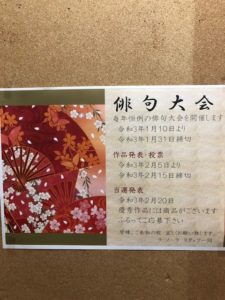 俳句大会
毎年恒例の俳句大会を開催します
令和3年1月10日より
令和3年1月31日締切
作品発表・投票
令和3年2月5日より
令和3年2月15日締切
当選発表
令和3年2月20日
優秀作品には商品がございます
ふるってご応募下さい